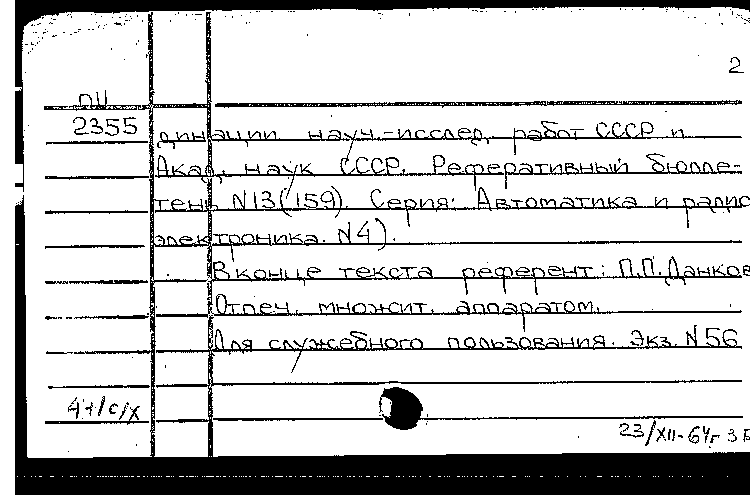 2
ПШ
2355
динации науч.-исслед. работ СССР и
Акад. наук СССР. Реферативный бюлле-
тень N13(159). Серия: Автоматика и радио
электроника. N4).
В конце текста референт: П.П.Данков
Отпеч. множит. аппаратом.
Для служебного пользования. Экз. N56
4+/с/х
23/XII-64г ЗБ